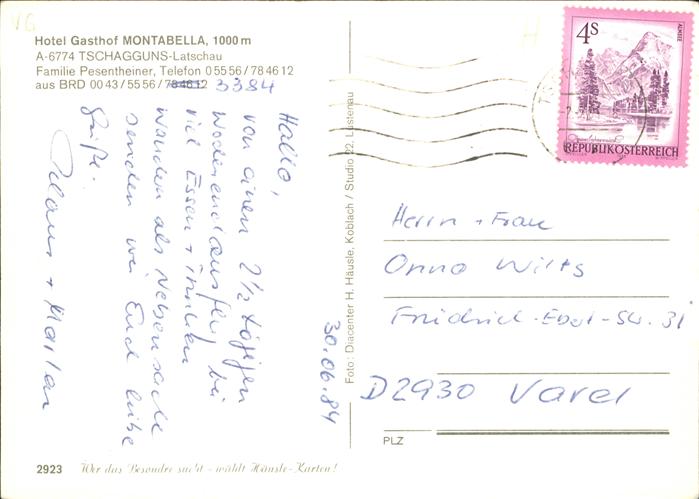 Hotel Gasthof MONTABELLA, 1000 m
A-6774 TSCHAGGUNS-Latschau
Familie Pesentheiner, Telefon 0 55 56 / 78 46 12
aus BRD 00 43 / 55 56 / 78 46 12 3384
Hallo,
von einem 2 1/2 tägigen
Wochenendausflug bei
viel Essen + Trinken
wandern als Nebensache
senden wir Euch liebe
Grüße.
Klaus + Marlen
30.06.84
Foto: Diacenter H. Häusle, Koblach / Studio 22, Lustenau
4S
ALMSEE
REPUBLIK ÖSTERREICH
Herrn + Frau
Onno Wilts
Friedrich-Ebert-Str. 31
D 2930 Varel
PLZ
2923 Wer das Besondre sucht - wählt Häusle-Karten!